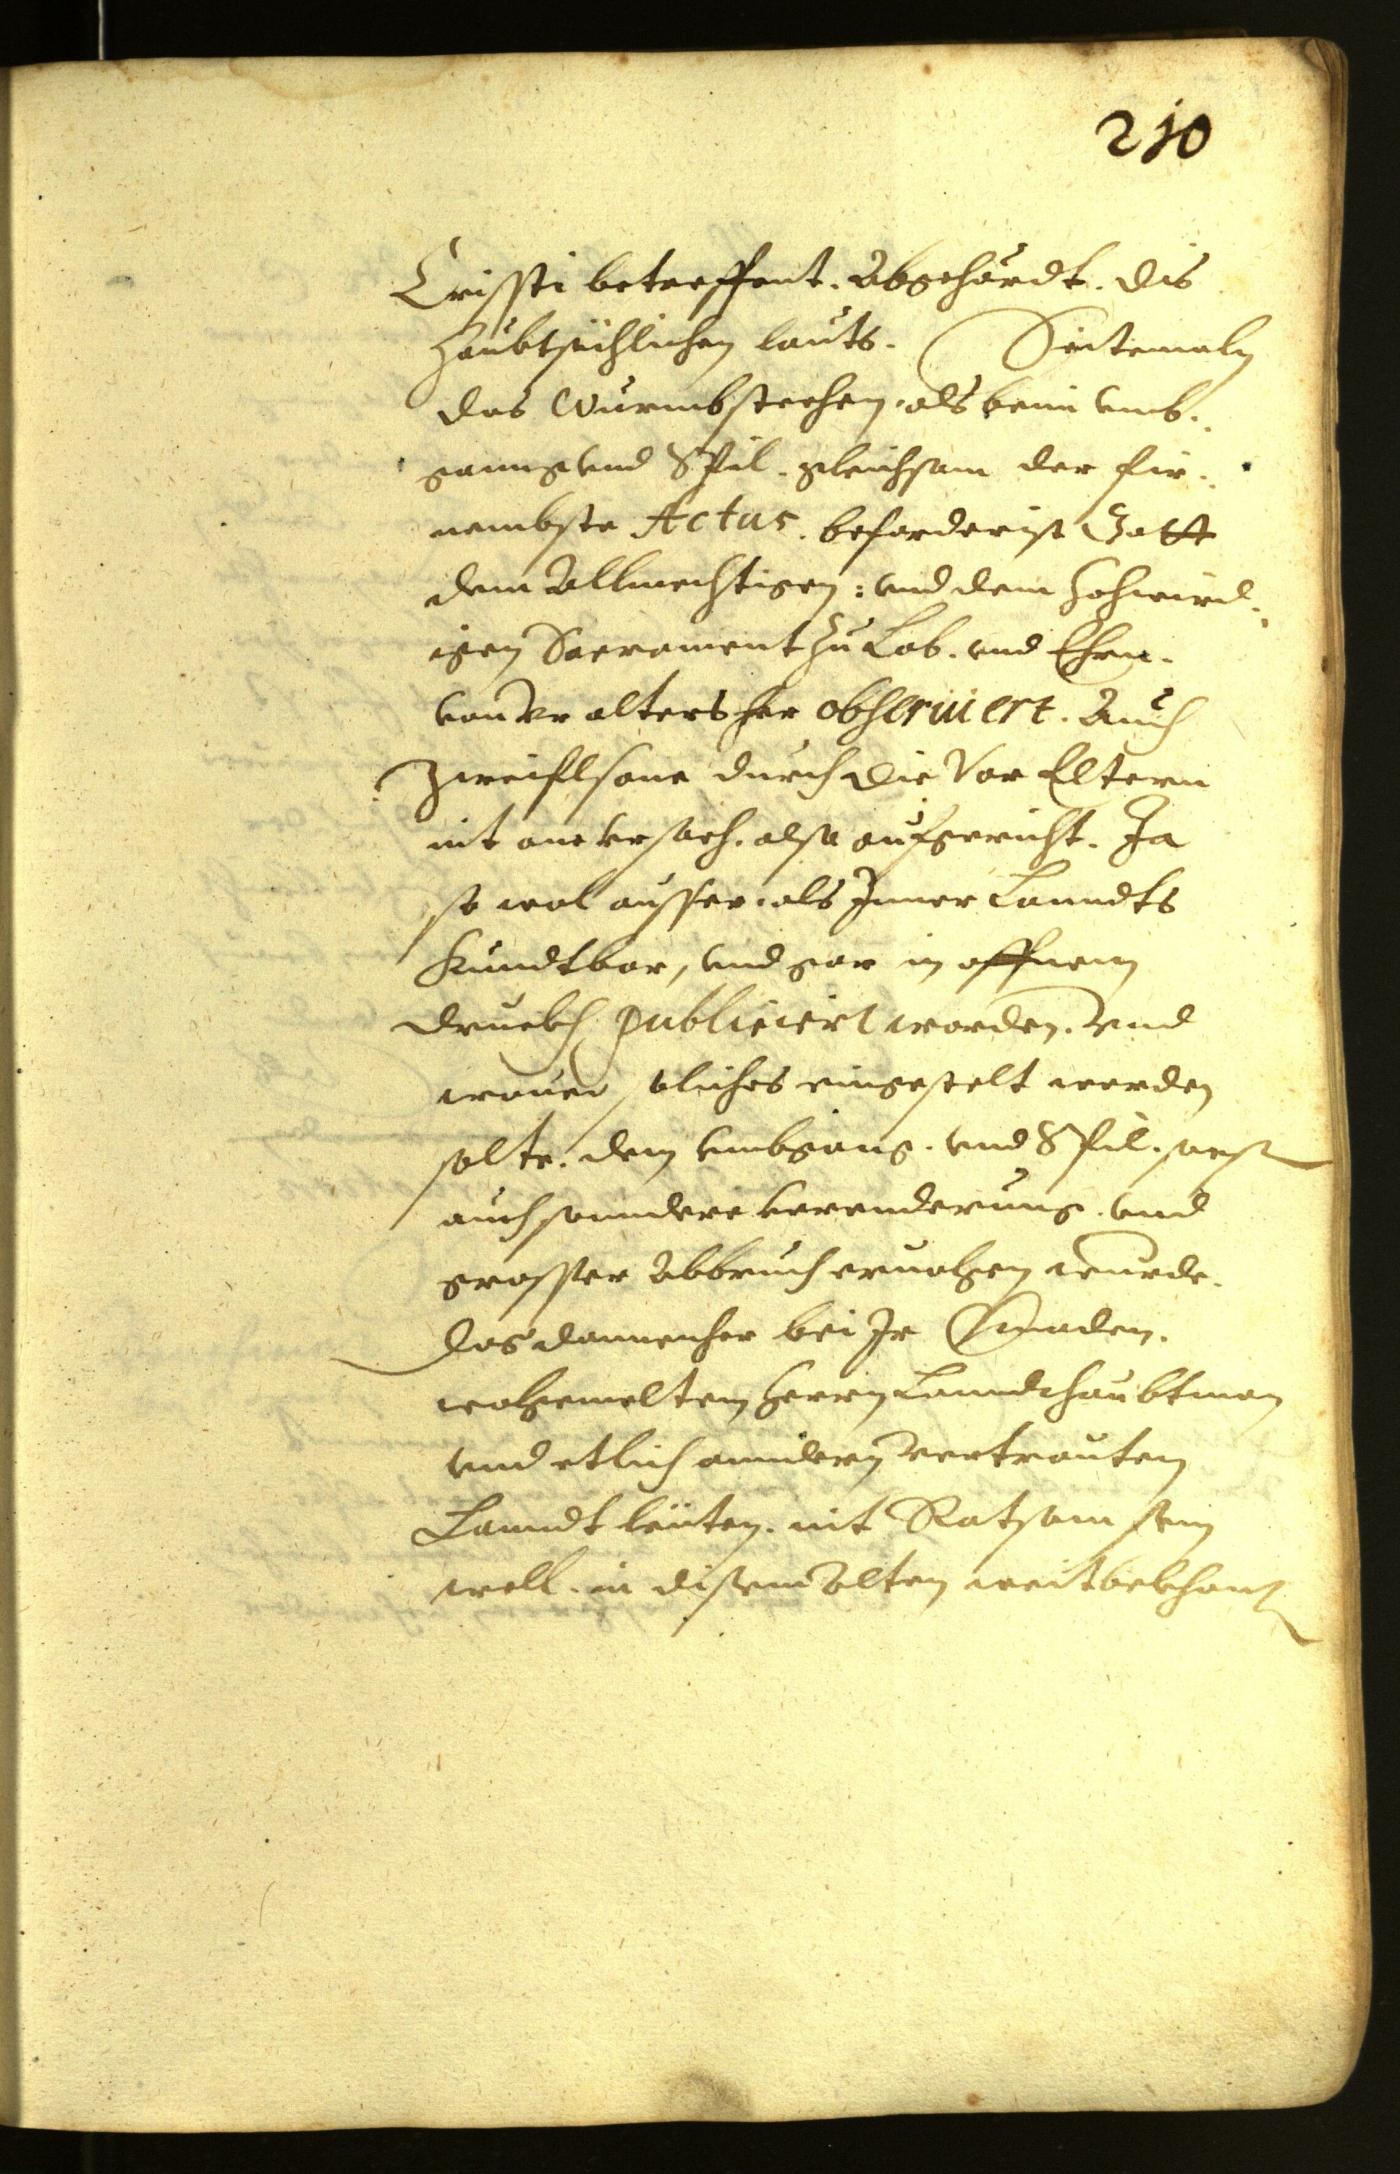 210
Cristi betreffent. Abgehördt. Dis
haubtsächlichen lauts. Seitemaln
das Wurmbstechen, als beim umb-
ganng und Spil. gleichsam der für-
nembste Actus. beforderist Gott
dem Allmechtigen: und dem Hohwird-
igen Sacrament zu Lob. und Ehrn.
von ur alters her obseruiert. Auch
Zweiflsone durch die Vor Eltern
nit one ursach. also aufgericht. Ja
so wol ausser, als Inner Lanndts
Kundtbar, und gar in offnem
druckh publiciert worden. Und
wouer soliches eingestelt werden
solte. dem umbgang. und Spil.
auch sonndere verenderung. und
grosser Abbruch ervolgen wurde.
Das dannenher bei Ir Gnaden.
wolgemeltem Herrn Lanndshaubtman
und etlich anndern vertrauten
Lanndtleüten. nit Ratsam sein
well. in disem Alten weitbekhant